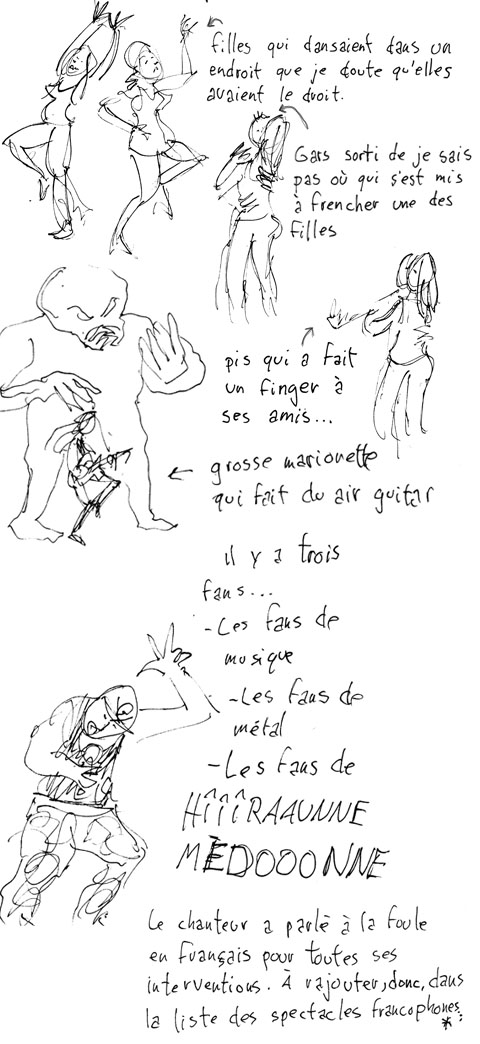 filles qui dansaient dans un
endroit que je doute qu'elles
avaient le droit.
Gars sorti de je sais
pas où qui s'est mis
à frencher une des
filles
pis qui a fait
un finger à
ses amis...
grosse marionette
qui fait du air guitar
il y a trois
fans...
-Les fans de
musique
-Les fans de
métal
-Les fans de
HÎÎÎRAAUNNE
MÈDOOONNE
Le chanteur a parlé à la foule
en français pour toutes ses
interventions. À rajouter, donc, dans
la liste des spectacles francophones.
*